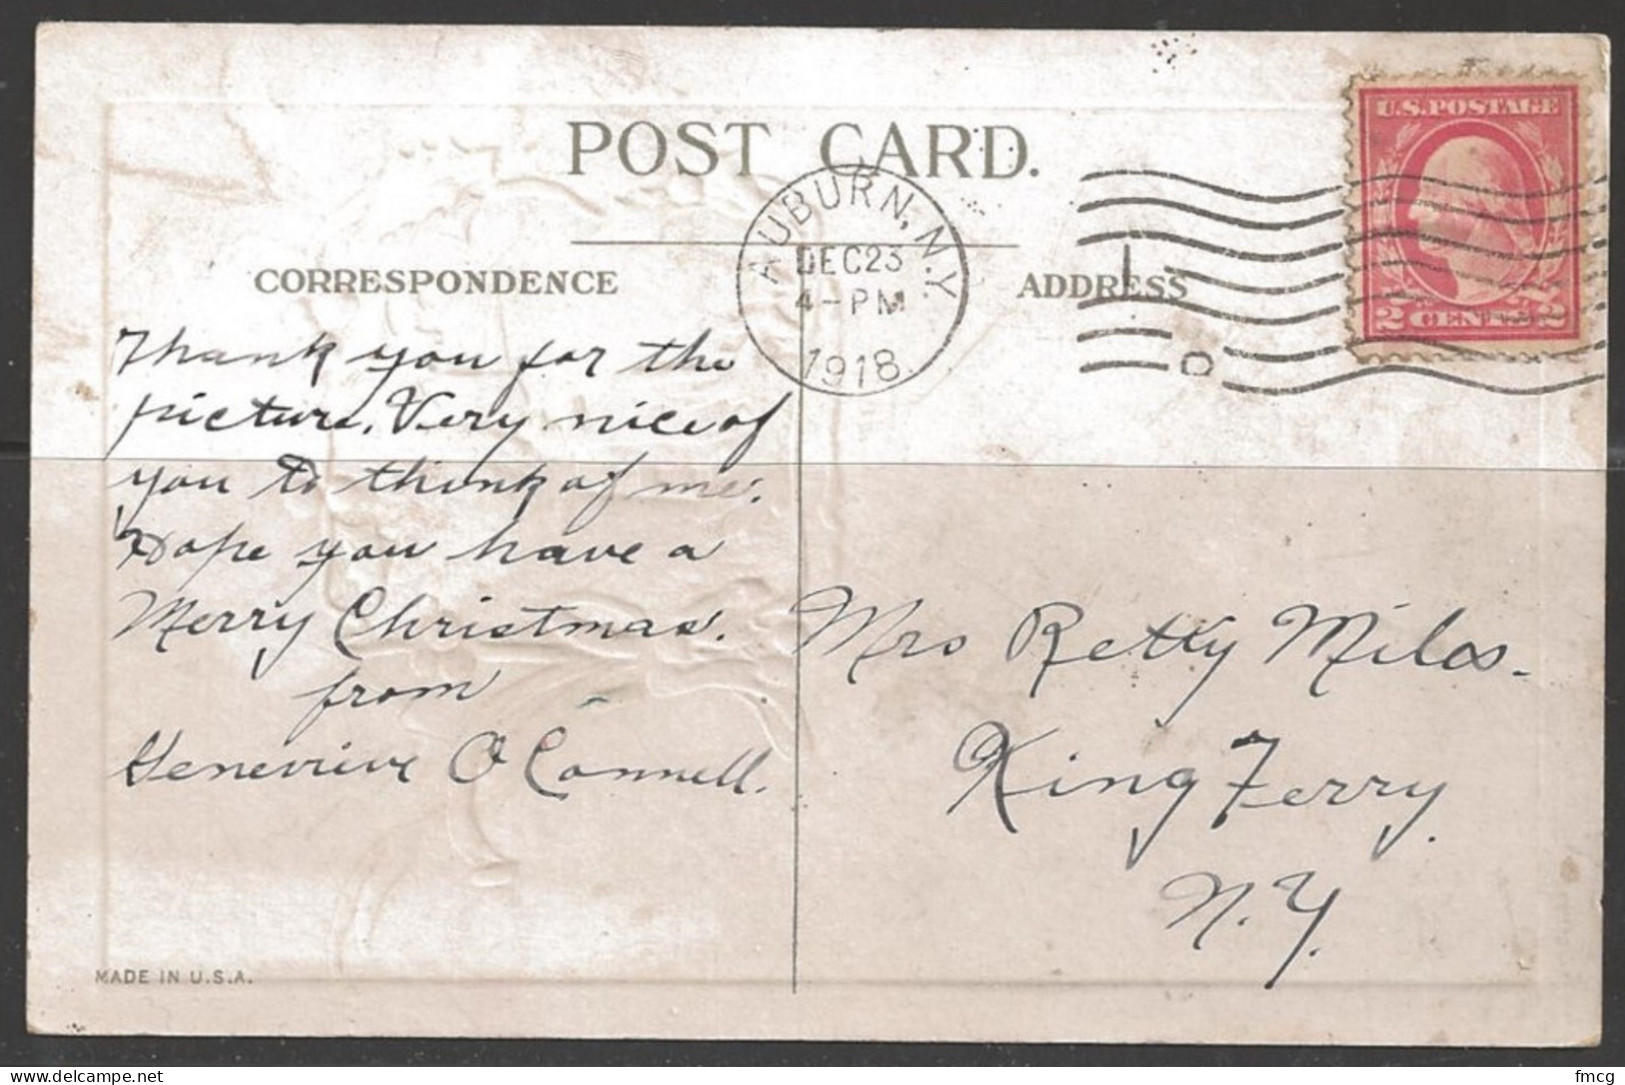 POST CARD.
U.S. POSTAGE
2 CENTS 2
AUBURN, N.Y.
DEC 23
4-PM
1918
CORRESPONDENCE
ADDRESS
Thank you for the
picture. Very nice of
you to think of me.
Hope you have a
Merry Christmas.
from
Genevieve O'Connell.
Mrs Retty Miles.
King Ferry.
N.Y.
MADE IN U.S.A.
delcampe.net
fmcg